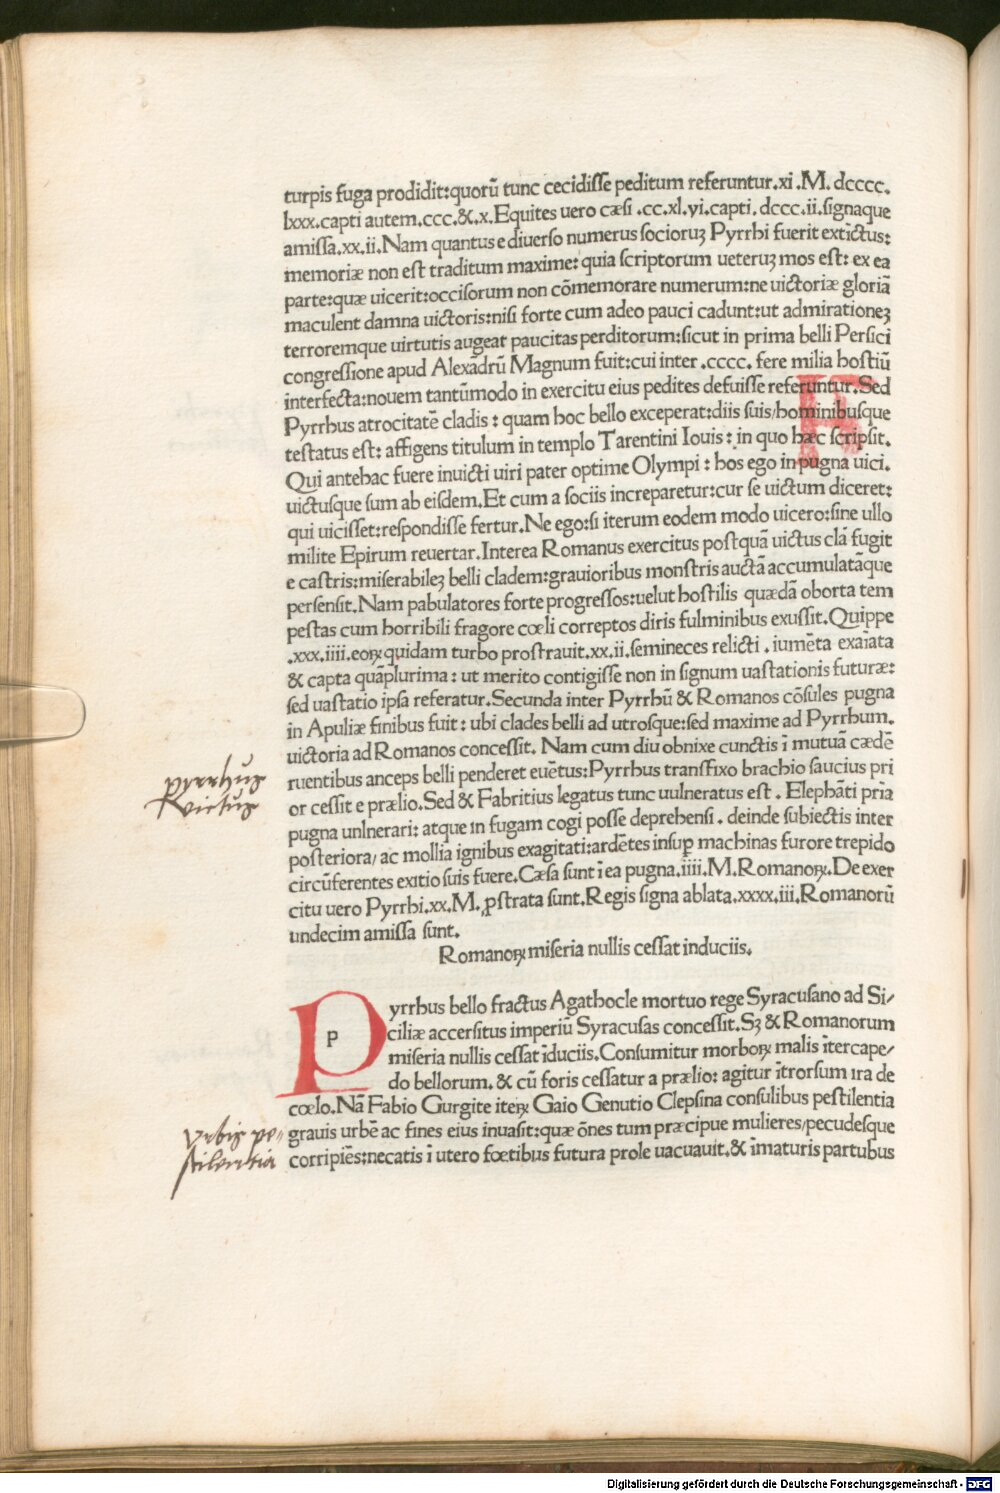 turpis fuga prodidit:quorū tunc cecidisse peditum referuntur.xi.M.dcccc.
lxxx.capti autem.ccc.&.x.Equites uero cæsi .cc.xl.vi.capti. dccc.ii.signaque
amissa.xx.ii.Nam quantus e diuerso numerus socioruꝫ Pyrrhi fuerit extictus:
memoriæ non est traditum maxime: quia scriptorum ueteruꝫ mos est: ex ea
parte:quæ uicerit:occisorum non cōmemorare numerum:ne uictoriæ gloriā
maculent damna uictoris:nisi forte cum adeo pauci cadunt:ut admirationeꝫ
terroremque uirtutis augeat paucitas perditorum:sicut in prima belli Persici
congressione apud Alexādrū Magnum fuit:cui inter .cccc. fere milia hostiū
interfecta:nouem tantūmodo in exercitu eius pedites defuisse referuntur.Sed
Pyrrhus atrocitatē cladis : quam hoc bello exceperat:diis suis/hominibusque
testatus est: affigens titulum in templo Tarentini Iouis : in quo hæc scripsit.
Qui antehac fuere inuicti uiri pater optime Olympi : hos ego in pugna uici.
uictusque sum ab eisdem.Et cum a sociis increparetur:cur se uictum diceret:
qui uicisset:respondisse fertur.Ne ego:si iterum eodem modo uicero:sine ullo
milite Epirum reuertar.Interea Romanus exercitus postquā uictus clā fugit
e castris:miserabileꝫ belli cladem:grauioribus monstris auctā accumulatāque
persensit.Nam pabulatores forte progressos:uelut hostilis quædā oborta tem
pestas cum horribili fragore cœli correptos diris fulminibus exussit.Quippe
.xxx.iiii.eoꝝ quidam turbo prostrauit.xx.ii.semineces relicti . iumēta exaīata
& capta quāplurima : ut merito contigisse non in signum uastationis futuræ:
sed uastatio ipsa referatur.Secunda inter Pyrrhū & Romanos cōsules pugna
in Apuliæ finibus fuit : ubi clades belli ad utrosque:sed maxime ad Pyrrhum.
uictoria ad Romanos concessit. Nam cum diu obnixe cunctis ī mutuā cædē
ruentibus anceps belli penderet euētus:Pyrrhus transfixo brachio saucius pri
or cessit e prælio.Sed & Fabritius legatus tunc uulneratus est . Elephāti pīia
pugna unlnerari: atque in fugam cogi posse deprehensi . deinde subiectis inter
posteriora/ ac mollia ignibus exagitati:ardētes insuꝑ machinas furore trepido
circūferentes exitio suis fuere.Cæsa sunt ī ea pugna.iiii.M.Romanoꝝ.De exer
citu uero Pyrrhi.xx.M.ꝓstrata sunt.Regis signa ablata.xxxx.iii.Romanorū
undecim amissa sunt.
Romanoꝝ miseria nullis cessat induciis.
Pyrrhus bello fractus Agathocle mortuo rege Syracusano ad Si/
ciliæ accersitus imperiū Syracusas concessit.Sꝫ & Romanorum
miseria nullis cessat īduciis.Consumitur morboꝝ malis ītercape/
do bellorum. & cū foris cessatur a prælio: agitur ītrorsum ira de
cœlo.Nā Fabio Gurgite iteꝝ Gaio Genutio Clepsina consulibus pestilentia
grauis urbē ac fines eius inuasit:quæ ōnes tum præcipue mulieres/pecudesque
corripiēs:necatis ī utero fœtibus futura prole uacuauit.& īmaturis partubus
pyrrhus
victus
Vrbis pe-
stilentia
Digitalisierung gefördert durch die Deutsche Forschungsgemeinschaft - DFG